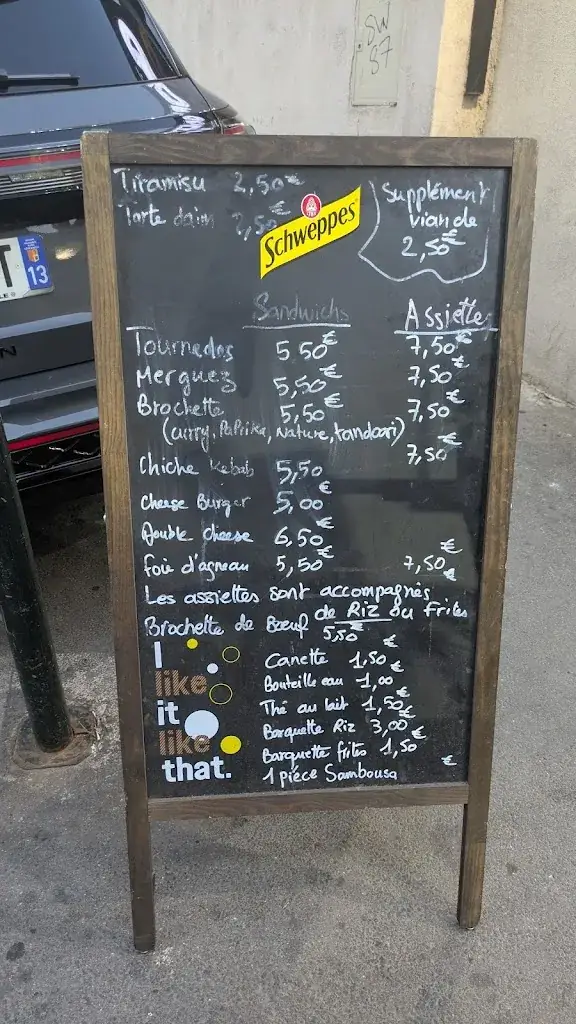 SW
87
T
13
Tiramisu 2,50€
Tarte daim 2,50€
Schweppes
Supplément
viande
2,50€
Sandwichs Assiette
Tournedos 5,50€ 7,50€
Merguez 5,50€ 7,50€
Brochette 5,50€ 7,50€
(curry, Paprika, Nature, tandoori)
Chiche Kebab 5,50 7,50€
Cheese Burger 5,00€
Double cheese 6,50€
foie d'agneau 5,50€ 7,50€
Les assiettes sont accompagnés
de Riz ou frites
Brochette de Bœuf 5,50€
I
like
it
like
that.
Canette 1,50€
Bouteille eau 1,00€
Thé au lait 1,50€
Barquette Riz 3,00€
Barquette frites 1,50€
1 pièce Sambousa €